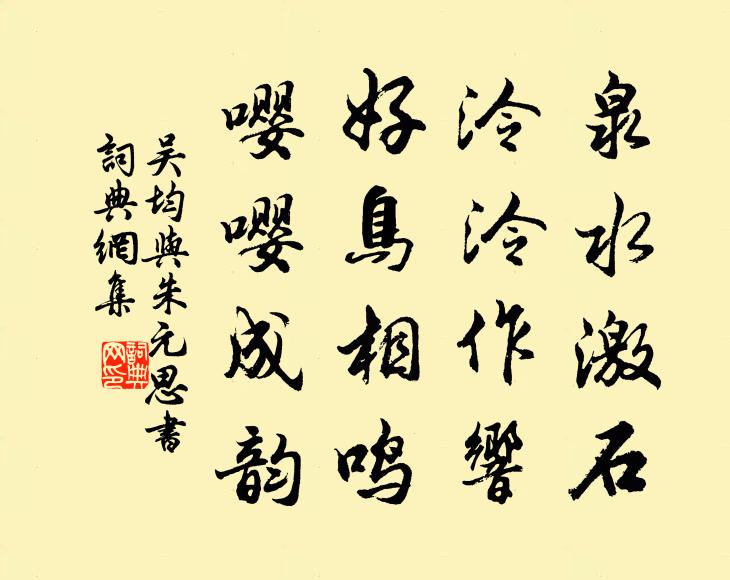 泉水激石
泠泠作響
好鳥相鳴
嚶嚶成韵
吴均與朱元思書
詞典網集
詞典网印